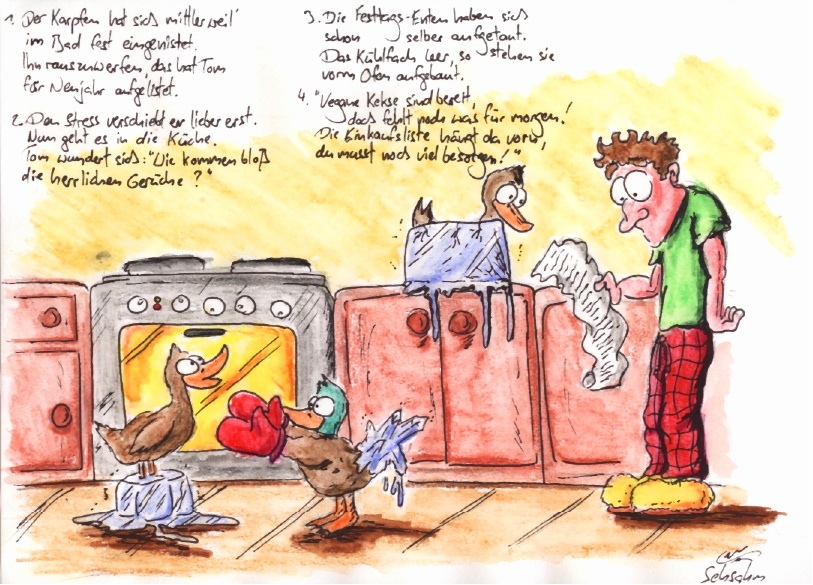 1. Der Karpfen hat sich mittlerweil'
im Bad fest eingenistet.
Ihn rauszuwerfen, das hat Tom
für Neujahr aufgelistet.
2. Den Stress verschiebt er lieber erst.
Nun geht es in die Küche.
Tom wundert sich: "Wie kommen bloß
die herrlichen Gerüche?"
3. Die Festtags-Enten haben sich
schon selber aufgetaut.
Das Kühlfach leer, so stehen sie
vorm Ofen aufgebaut.
4. "Vegane Kekse sind bereit,
doch fehlt noch was für morgen!
Die Einkaufsliste hängt da vorn,
du musst noch viel besorgen!"